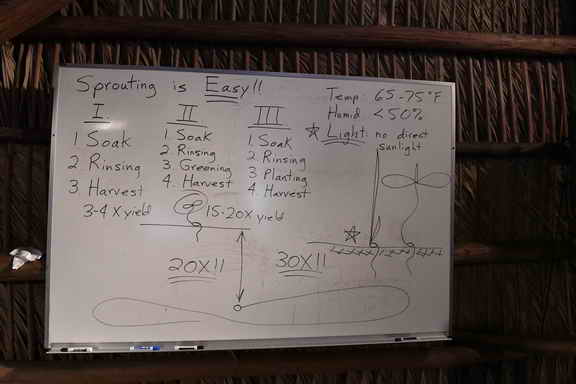 Sprouting is Easy!!
I.
1 Soak
2 Rinsing
3. Harvest
3-4 X yield
II
1. Soak
2. Rinsing
3. Greening
4. Harvest
15-20X yield
20X!!
III
1. Soak
2. Rinsing
3. Planting
4. Harvest
30X!!
Temp: 65-75°F
Humid: <50%
Light: no direct
sunlight